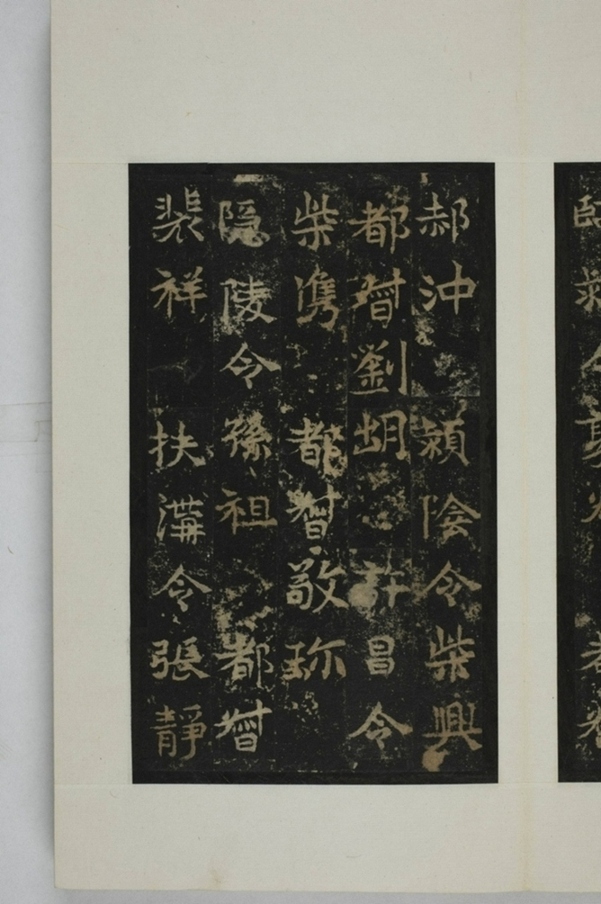 郝沖　頴陰令柴興
都督劉胡　許昌令
柴雋　都督敬珎
隐陵令孫祖　都督
裴祥　扶溝令張静